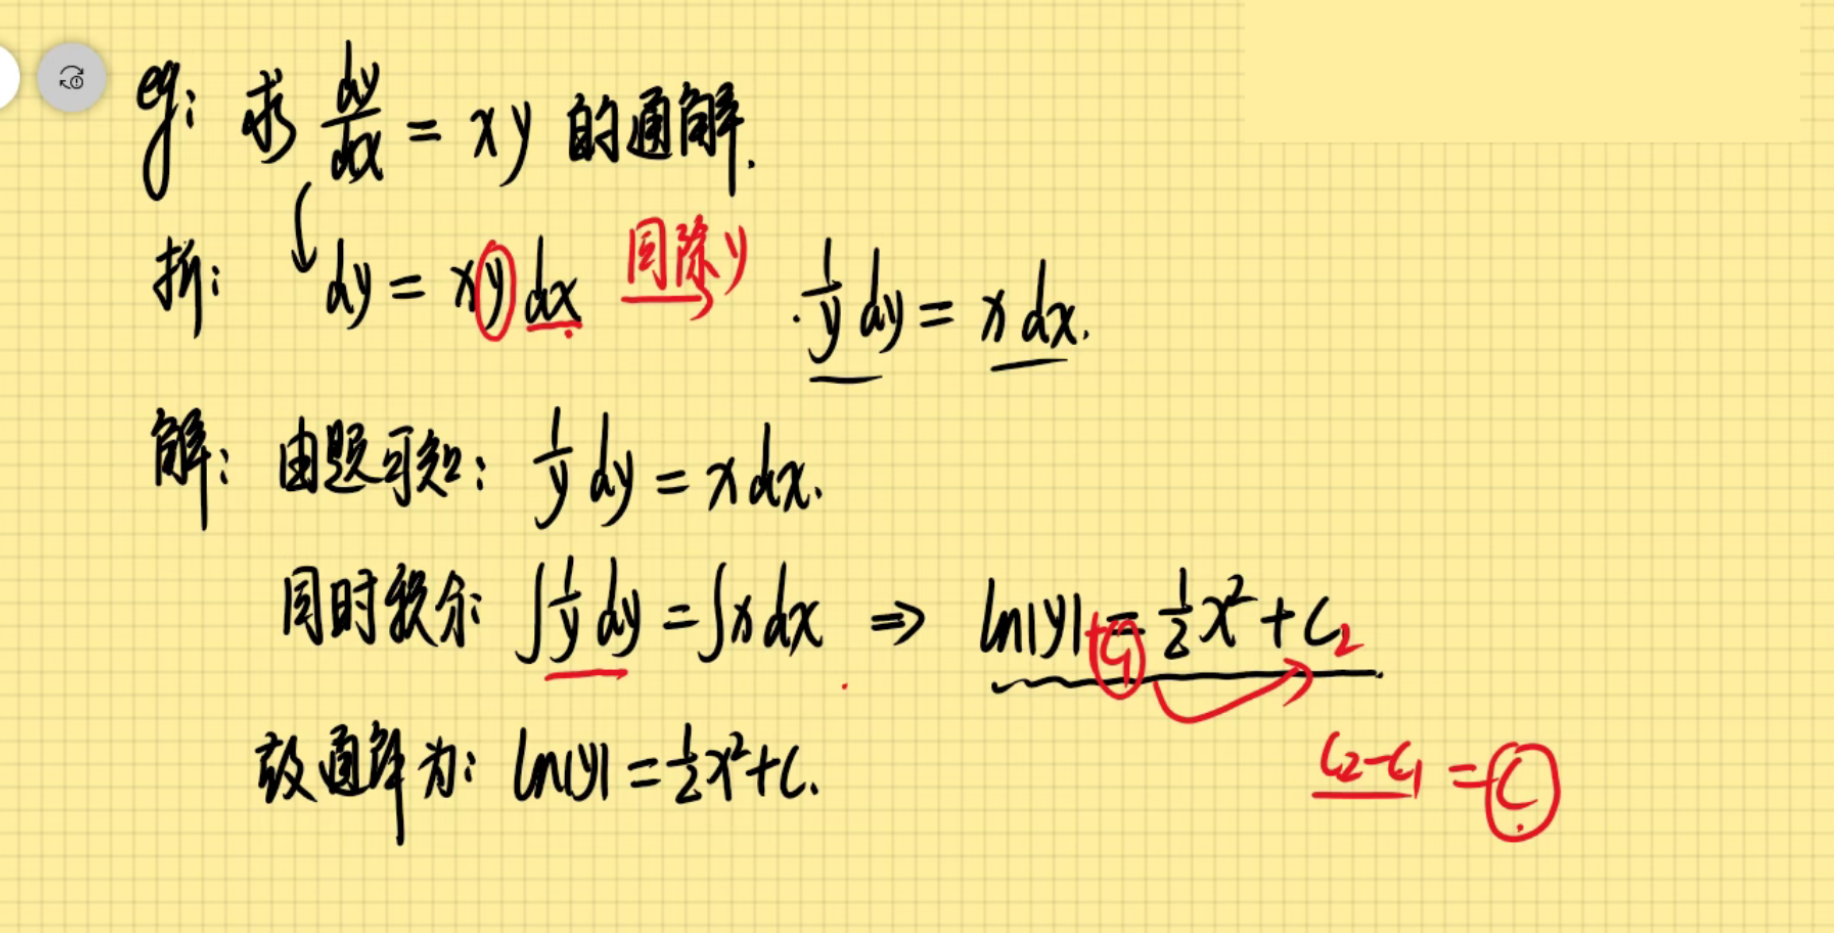 eg: 求 dy/dx = xy 的通解.
折: dy = xy dx 同除y 1/y dy = x dx.
解: 由题可知: 1/y dy = x dx.
同时积分: ∫1/y dy = ∫x dx ⇒ ln|y| + C₁ = 1/2 x² + C₂
故通解为: ln|y| = 1/2 x² + C.
C₂ - C₁ = C